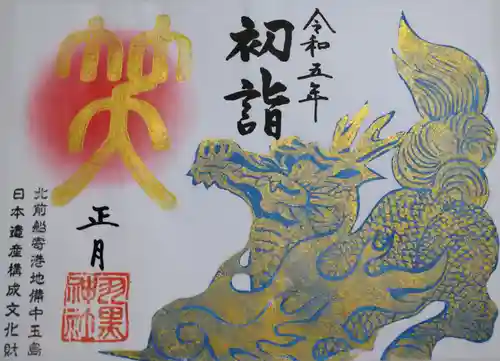 令和五年
初詣
笑
正月
羽黒
神社
北前船寄港地備中玉島
日本遺産構成文化財